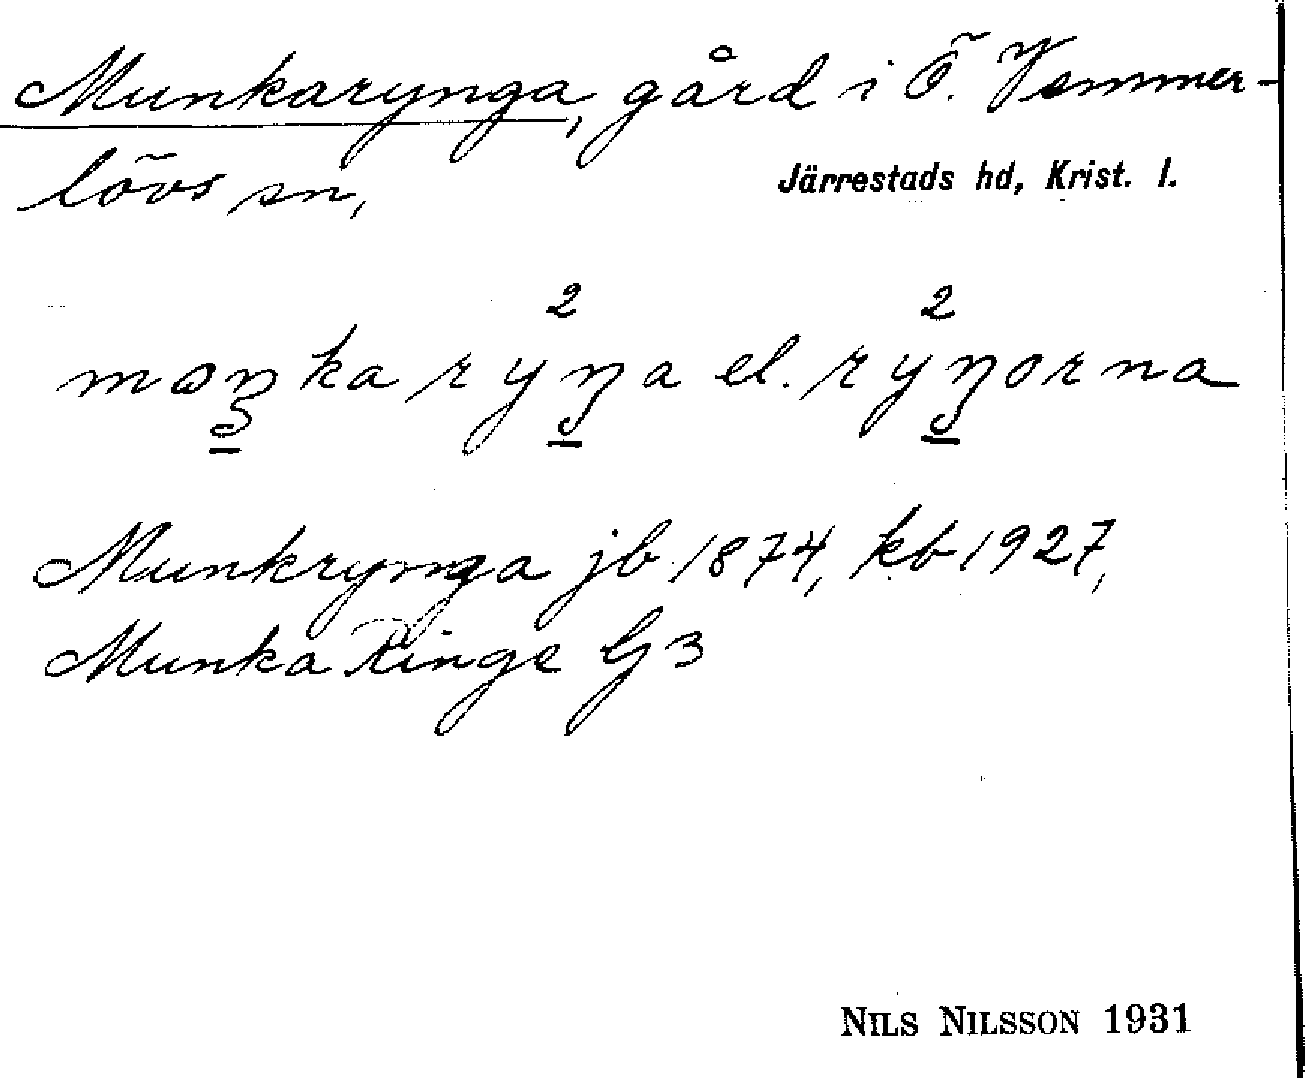 Munkarynga, gård i Ö. Vemmer-
lövs sn,
Järrestads hd, Krist. l.
moŋ̱ka rẙ²ŋ̱a el. rẙ²ŋ̱orna
Munkrynga jb 1874, kb 1927,
Munka Ringe G3
NILS NILSSON 1931